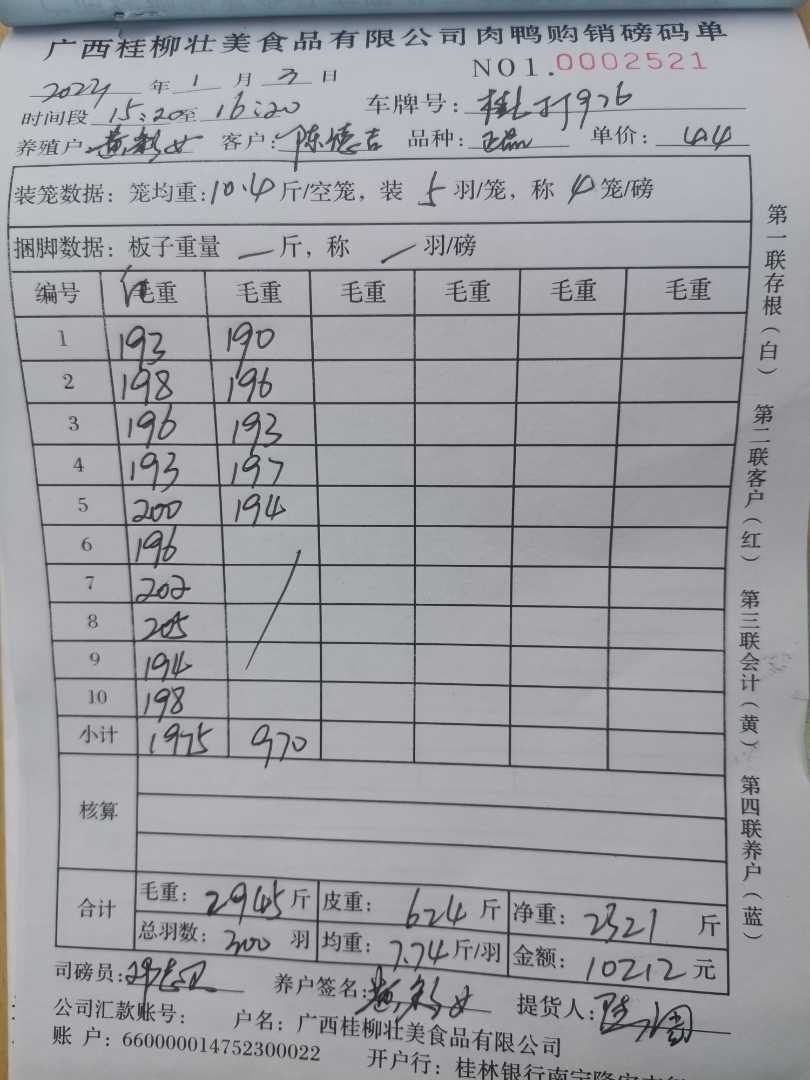 广西桂柳壮美食品有限公司肉鸭购销磅码单
年 1 月 3 日 NO1.0002521
时间段 15:20至 16:20 车牌号:
养殖户: 客户: 陈德吉 品种: 正品 单价: 4.4
装笼数据:笼均重:10.4斤/空笼,装 5 羽/笼,称 4 笼/磅
捆脚数据:板子重量 — 斤,称 羽/磅
编号 毛重 毛重 毛重 毛重 毛重 毛重
1 193 190
2 198 196
3 196 193
4 193 197
5 200 194
6 196
7 202
8 205
9 194
10 198
小计 1975 970
核算
合计 毛重: 2945 斤 皮重: 624 斤 净重: 2321 斤
总羽数: 300 羽 均重: 7.74 斤/羽 金额: 10212 元
司磅员: 养户签名: 提货人:
公司汇款账号: 户名:广西桂柳壮美食品有限公司
账 户:660000014752300022 开户行:桂林银行南宁隆安
第一联存根(白) 第二联客户(红) 第三联会计(黄) 第四联养户(蓝)